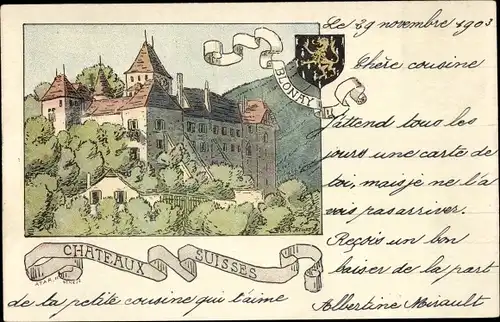 Le 29 novembre 1903
BLONAY
Chère cousine
J'attend tous les
jours une carte de
toi, mais je ne l'a
vois pas arriver.
Reçois un bon
baiser de la part
CHATEAUX SUISSES
de la petite cousine qui t'aime
Albertine Mirault